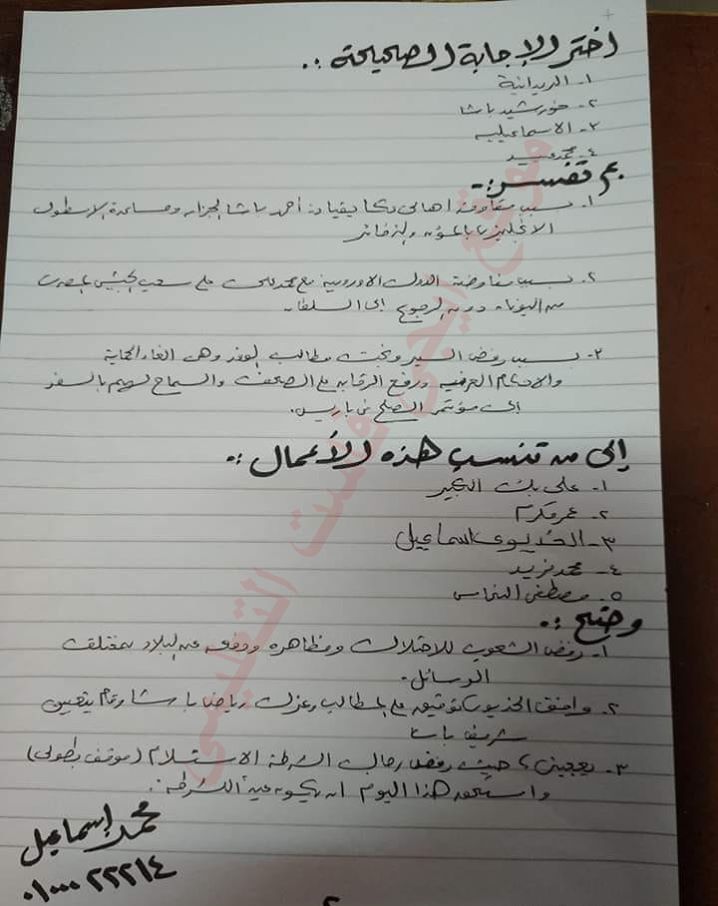 اختر الإجابة الصحيحة :.
١- الريدانية
٢- خورشيد باشا
٣- الاسماعيلية
٤- محمد عبيد
بم تفسر :-
١- بسبب مقاومة اهالى عكا بقيادة أحمد باشا الجزار ومساعدة الاسطول
الانجليزى بالمؤن والذخائر
٢- بسبب مفاوضة الدول الاوروبية مع محمد على على سحب الجيش المصرى
من اليونان دون الرجوع الى السلطان
٣- بسبب رفض السير ونجت مطالب الوفد وهى الغاء الحماية
والاحكام العرفية ورفع الرقابة على الصحف والسماح لهم بالسفر
إلى مؤتمر الصلح فى باريس.
إلى من تنسب هذه الأعمال :.
١- على بك الكبير
٢- عمر مكرم
٣- الخديوى اسماعيل
٤- محمد فريد
٥- مصطفى النحاس
وضح :.
١- رفض الشعوب للاحتلال ومظاهره ودفعه عن البلاد بمختلف
الوسائل.
٢- وافق الخديوى توفيق على المطالب وعزل رياض باشا وقام بتعيين
شريف باشا
٣- يعجبنى، حيث رفض رجال الشرطة الاستسلام (موقف بطولى)
واستحق هذا اليوم ان يكون عيد الشرطة.
محمد إسماعيل
موقع ايجى فست التعليمى